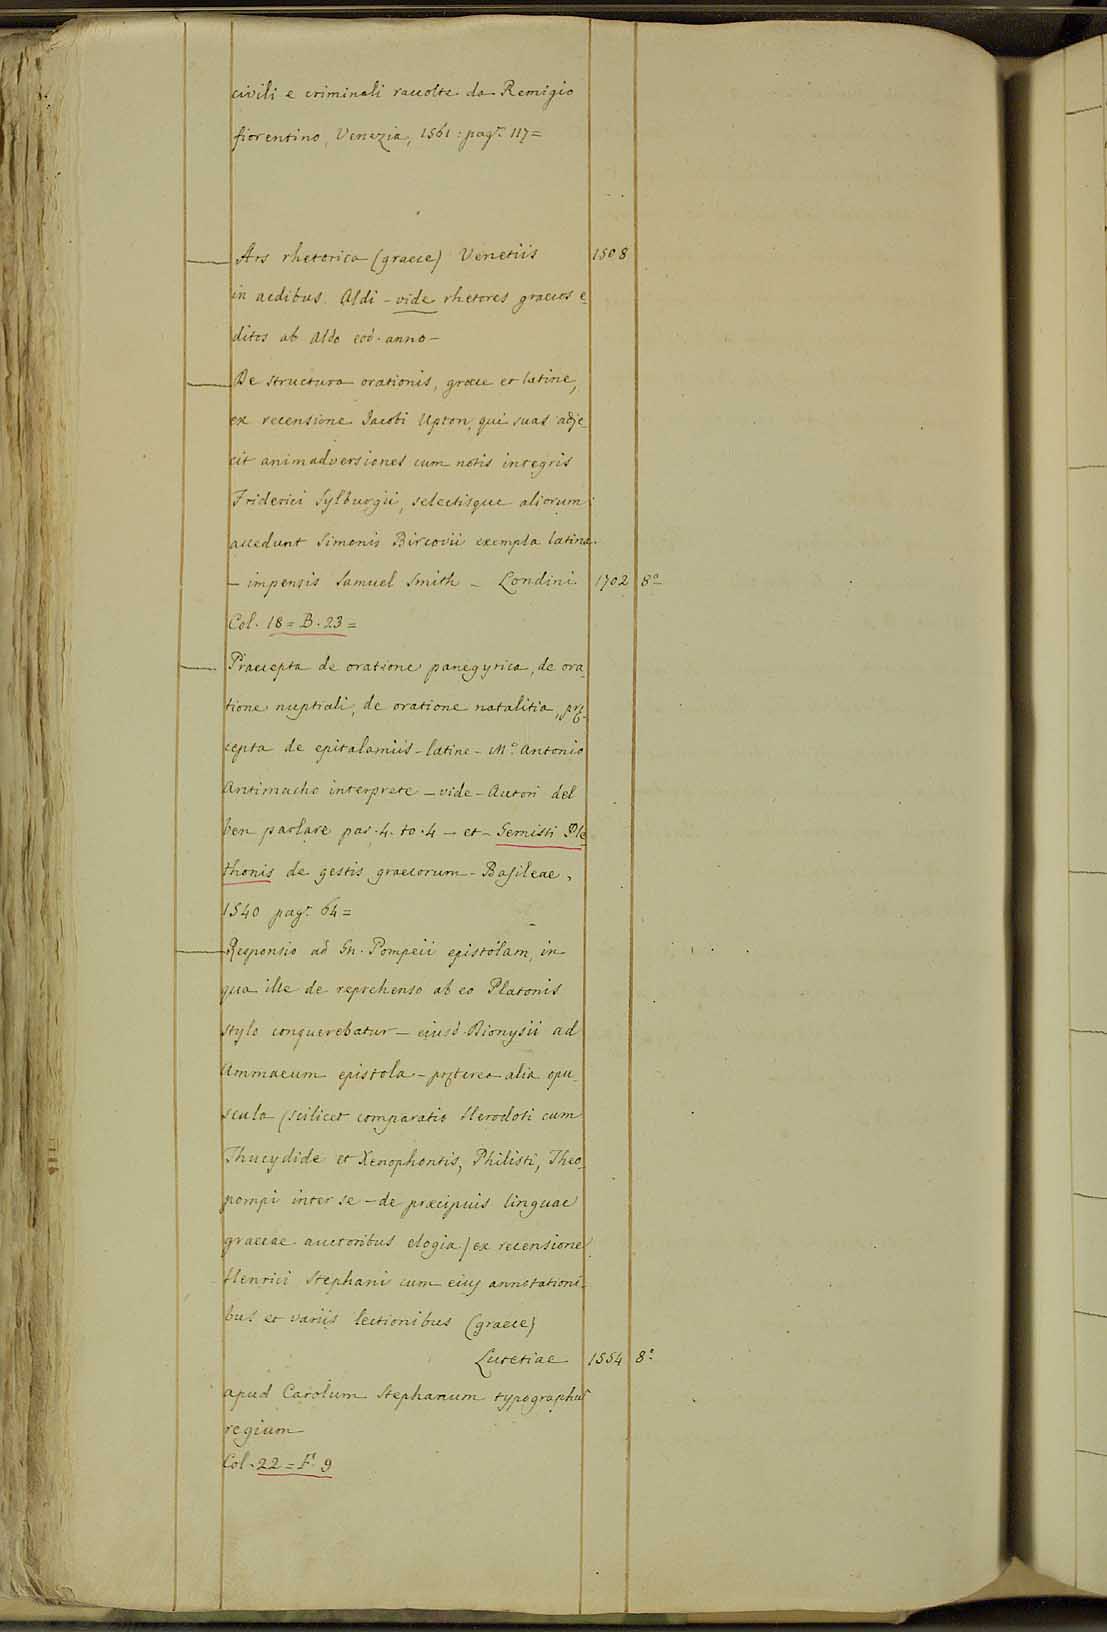 civili e criminali raccolte da Remigio
fiorentino, Venezia, 1561: pag.e 117=
Ars rhetorica (graece) Venetiis 1508
in aedibus Aldi - vide rhetores graecos e
ditos ab Aldo eod. anno -
De structura orationis, graece et latine,
ex recensione Jacobi Upton, qui suas adje
cit animadversiones cum notis integris
Friderici Sylburgii, selectisque aliorum:
accedunt Simonis Bircovii exempla latina.
- impensis Samuel Smith - Londini 1702 8o
Col. 18 = B. 23 =
Praecepta de oratione panegyrica, de ora
tione nuptiali, de oratione natalitia, prę
cepta de epitalamiis - latine - M.o Antonio
Antimacho interprete - vide - Autori del
ben parlare par. 4. to. 4 - et - Gemisti Ple
thonis de gestis graecorum - Basileae,
1540 pag. 64 =
Responsio ad Gn. Pompeii epistolam, in
qua ille de reprehenso ab eo Platonis
stylo conquerebatur - ejusd. Dionysii ad
Ammaeum epistola - pręterea alia opu
scula (scilicet comparatio Herodoti cum
Thucydide et Xenophontis, Philisti, Theo
pompi inter se - de praecipuis linguae
graecae auctoribus elogia) ex recensione
Henrici Stephani cum eius annotationi
bus et variis lectionibus (graece)
Lutetiae 1554 8o
apud Carolum Stephanum typographu
regium
Col. 22 = F. 9